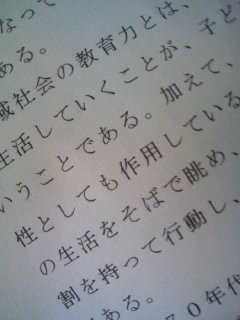 なって
ある。
域社会の教育力とは、
生活していくことが、子ど
いうことである。加えて、
性としても作用している
の生活をそばで眺め、
割を持って行動し、
ある。
７０年代